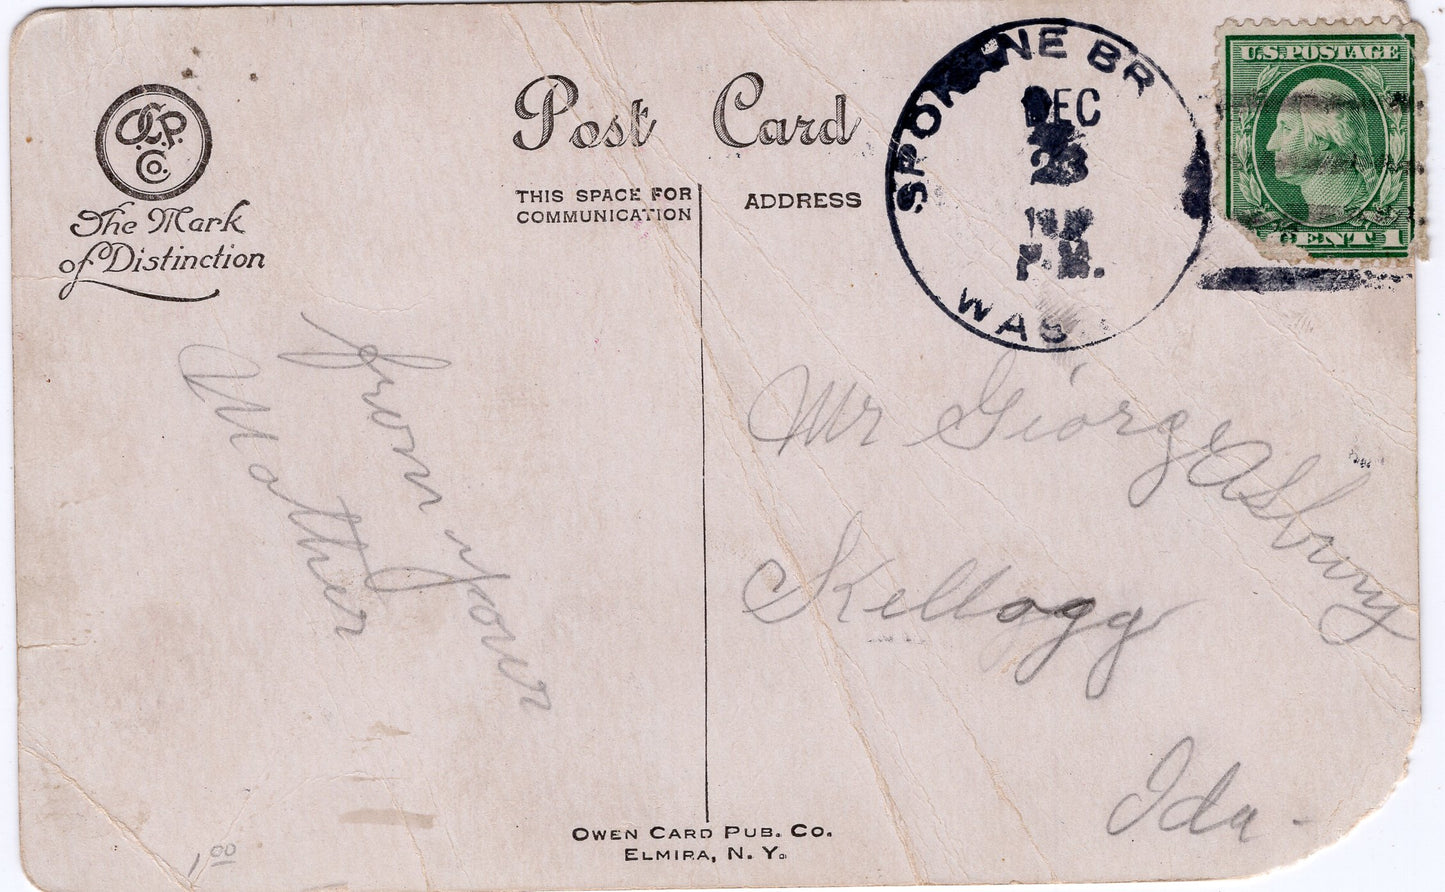 O.C.P.
Co.
The Mark
of Distinction
Post Card
THIS SPACE FOR
COMMUNICATION
ADDRESS
SPOKANE BR
DEC
23
P.M.
WAS
U.S. POSTAGE
CENT 1
from your
Mother
Mr George Asbury
Kellogg
Ida -
1.00
OWEN CARD PUB. CO.
ELMIRA, N. Y.